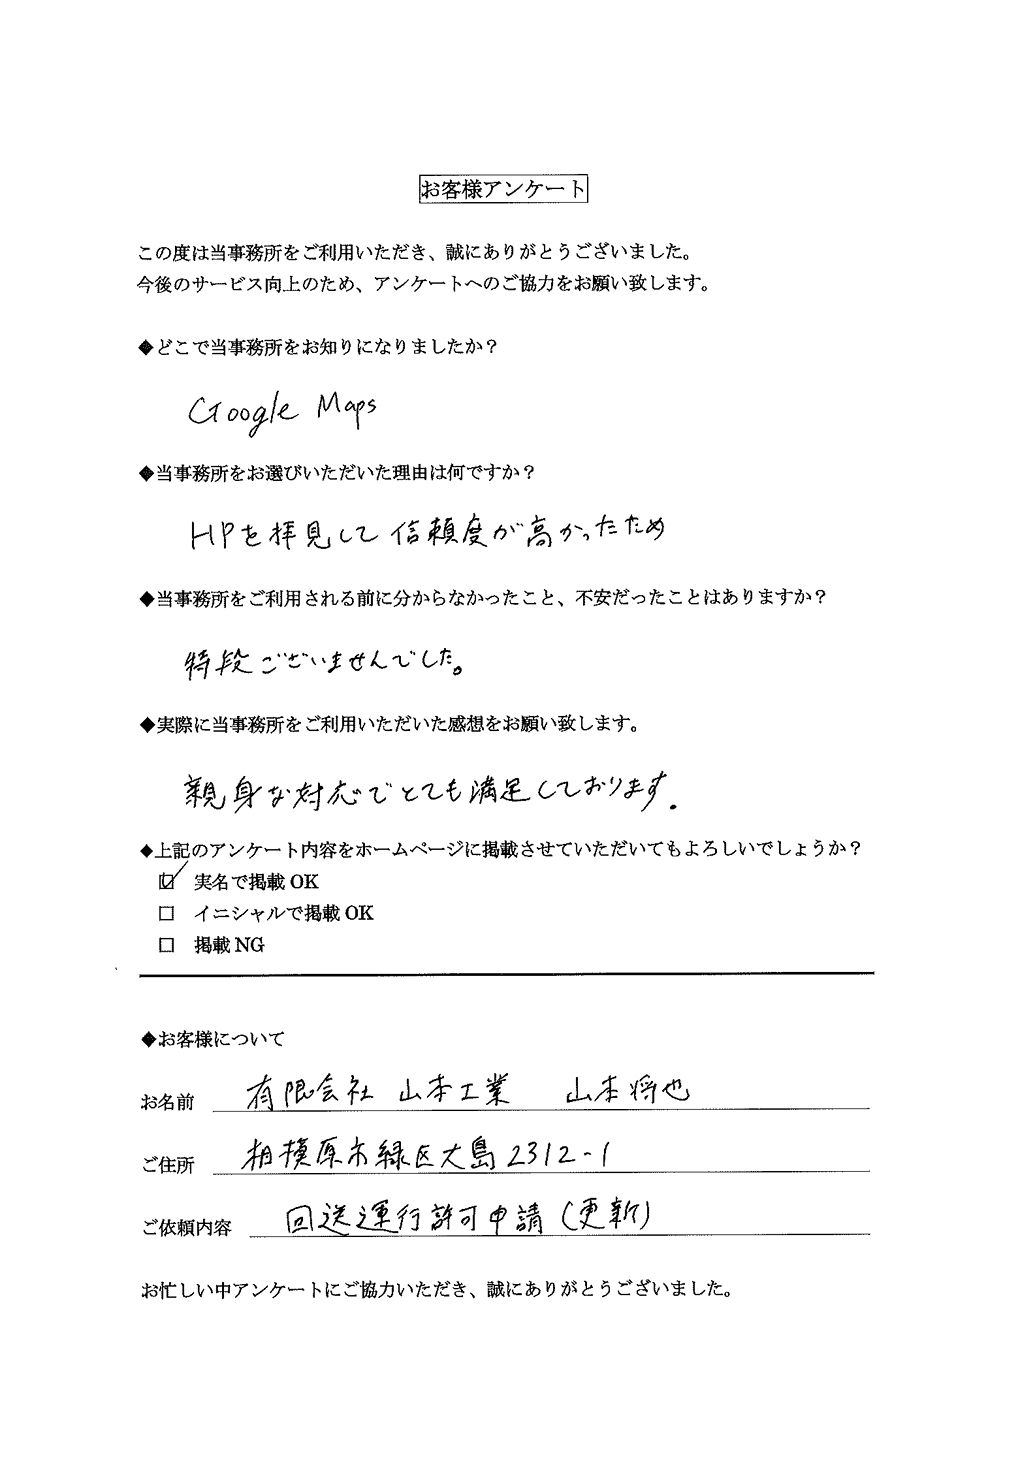 お客様アンケート
この度は当事務所をご利用いただき、誠にありがとうございました。
今後のサービス向上のため、アンケートへのご協力をお願い致します。
◆どこで当事務所をお知りになりましたか？
Google Maps
◆当事務所をお選びいただいた理由は何ですか？
HPを拝見して信頼度が高かったため
◆当事務所をご利用される前に分からなかったこと、不安だったことはありますか？
特段ございませんでした。
◆実際に当事務所をご利用いただいた感想をお願い致します。
親身な対応でとても満足しております.
◆上記のアンケート内容をホームページに掲載させていただいてもよろしいでしょうか？
☑ 実名で掲載 OK
□ イニシャルで掲載 OK
□ 掲載 NG
◆お客様について
お名前 有限会社 山本工業 山本将也
ご住所 相模原市緑区大島2312-1
ご依頼内容 回送運行許可申請(更新)
お忙しい中アンケートにご協力いただき、誠にありがとうございました。